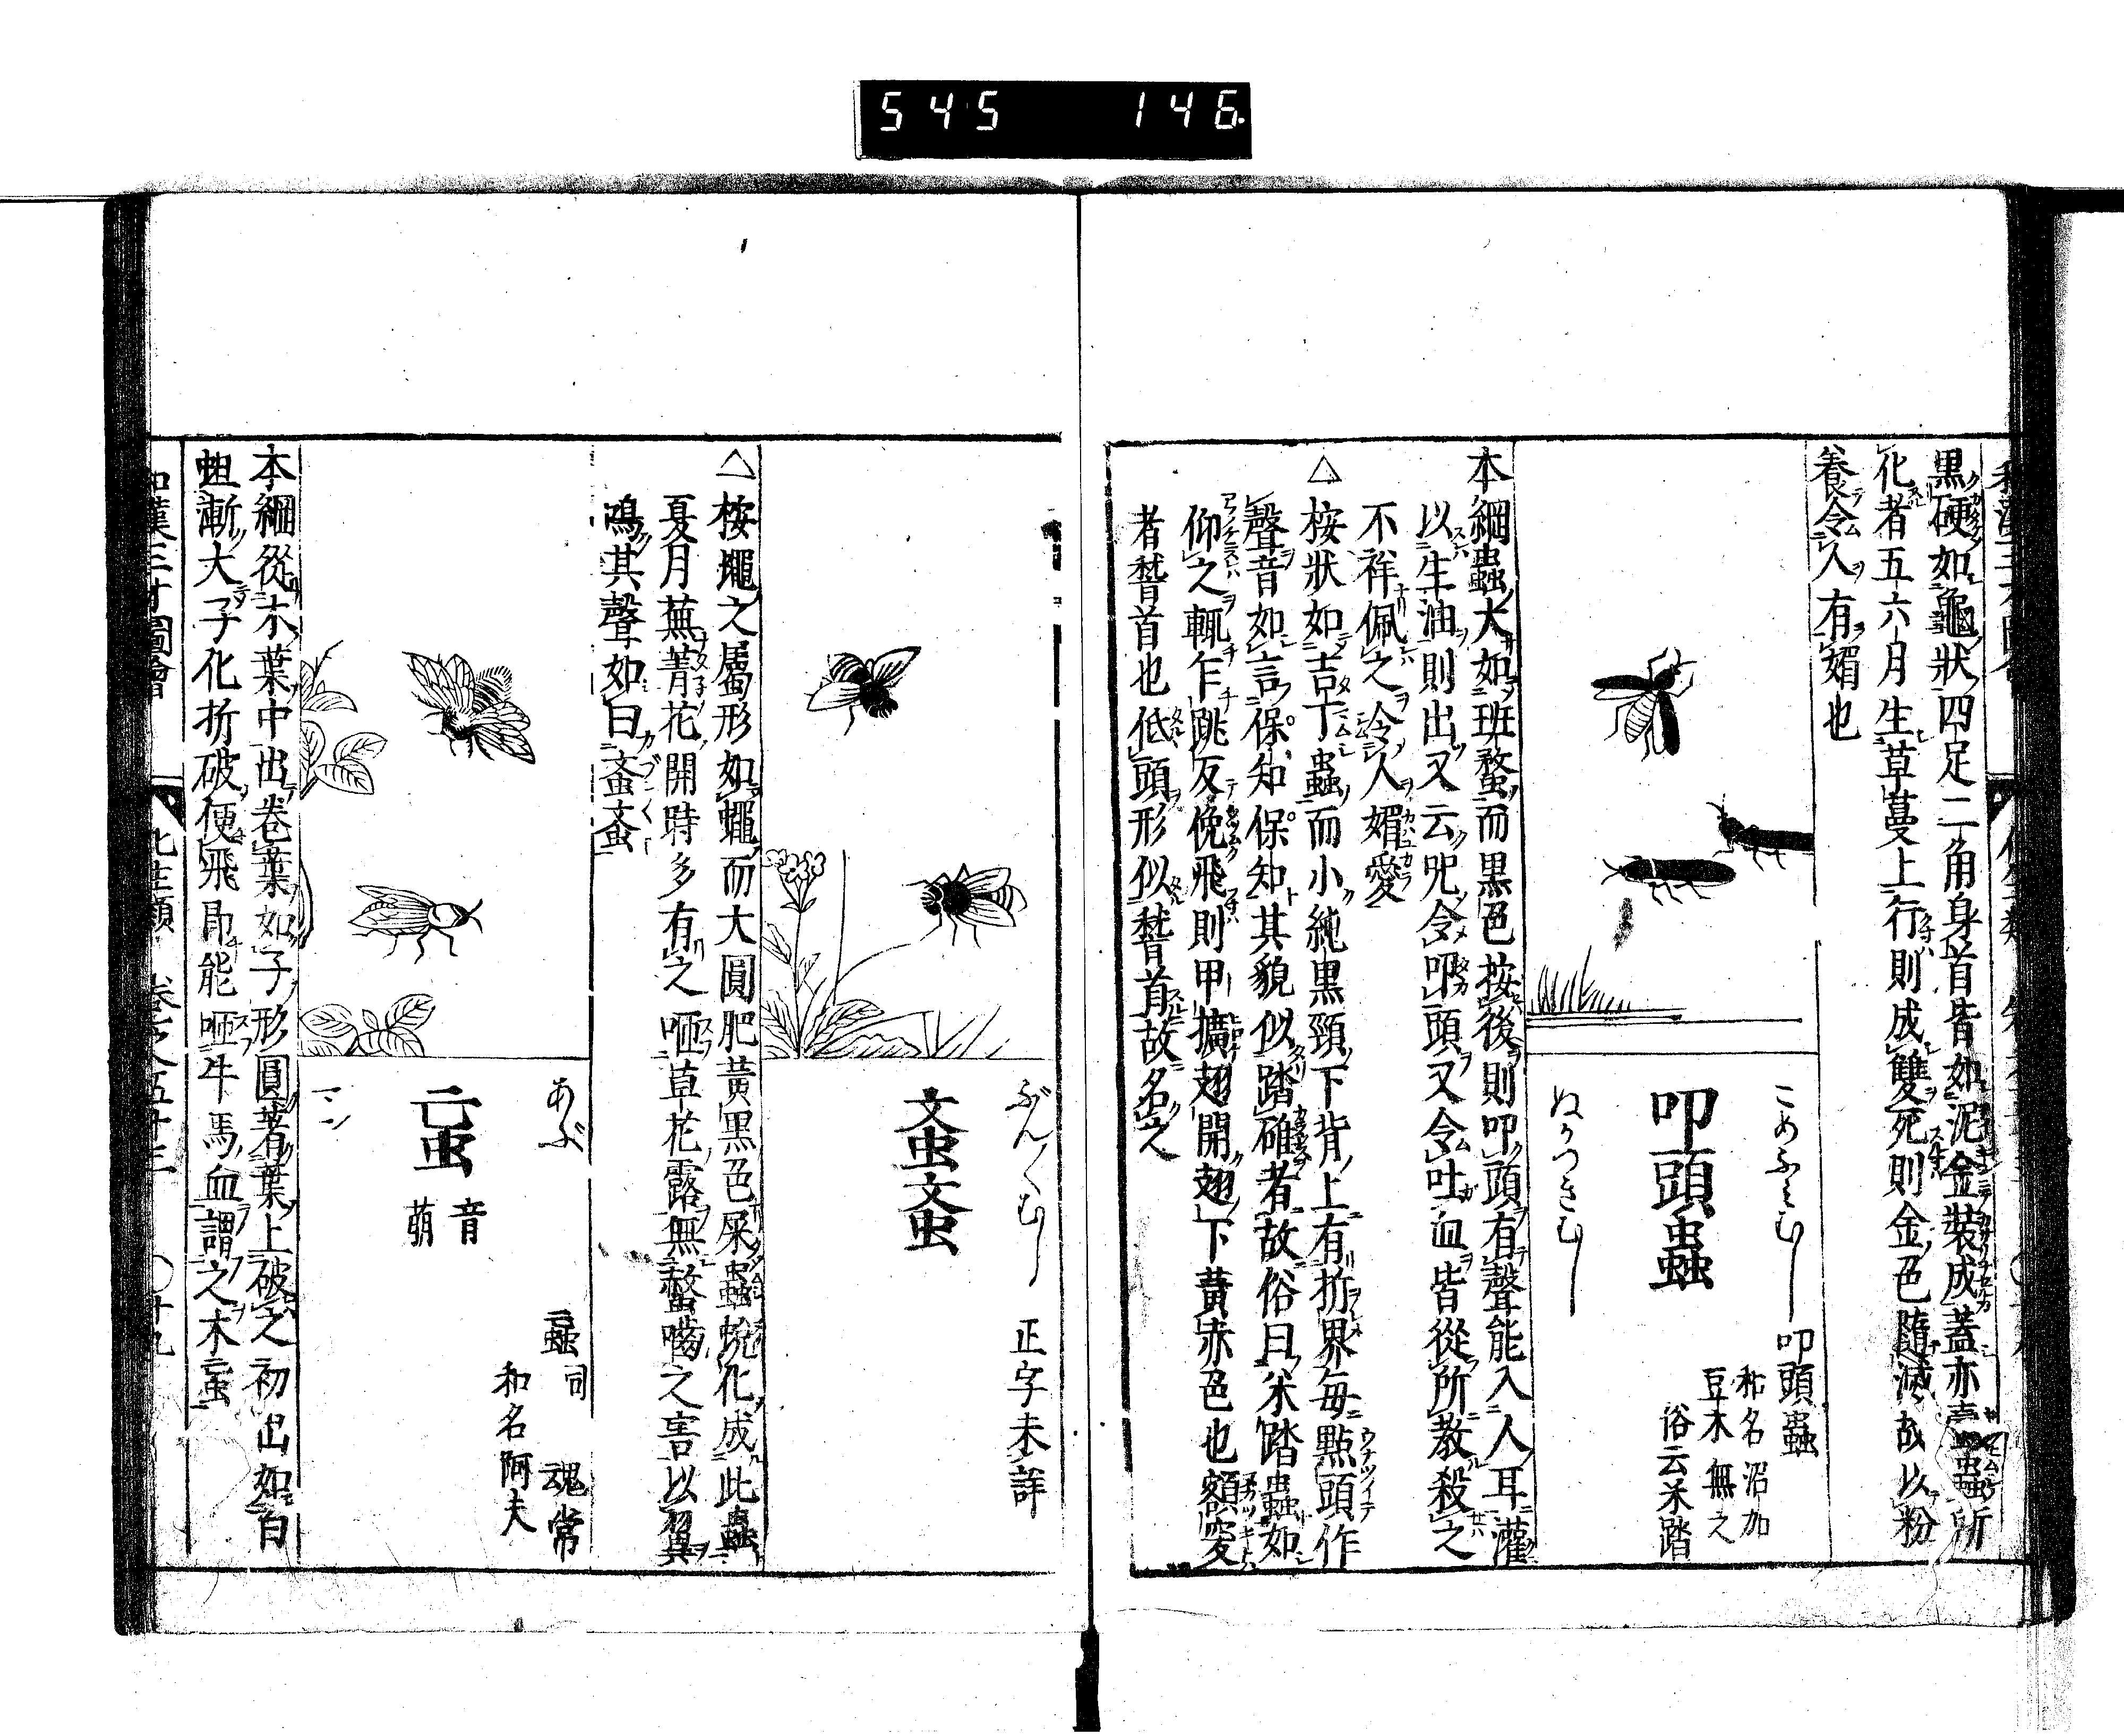 545 146
黒硬如龜狀四足二角身首皆如泥金裝成蓋亦蟲所
化者五六月生草蔓上行則成雙死則金色隨滅故以粉
養令人有媚也
こめふみむし
叩頭蟲
ぬかつきむし
叩頭蟲
和名沼加
豆木無之
俗云米踏
本綱蟲大如斑蝥而黒色按後則叩頭有聲能入人耳灌
以生油則出又云咒令叩頭又令吐血皆從所教殺之
不祥佩之令人媚愛
△按狀如吉丁蟲而小純黒頸下背上有折界毎點頭作
聲音如言保知保知其貌似踏碓者故俗曰米踏蟲如
仰之輒乍跳反俛飛則甲擴翅開翅下黃赤色也額突
者䭫首也低頭形似䭫首故名之
ぶん〳〵むし
正字未詳
蚉蚉
△按蠅之屬形如蠅而大圓肥黃黒色屎蟲蛻化成此蟲
夏月蕪菁花開時多有之咂草花露無螫嚙之害以翼
鳴其聲如曰蚉蚉
あぶ
蝱
音萌
マン
蝱同 魂常
和名阿夫
本綱從木葉中出卷葉如子形圓著葉上破之初出如白
蛆漸大子化折破便飛即能咂牛馬血謂之木蝱
和漢三才圖會 化生類 卷之五十三 〇十九